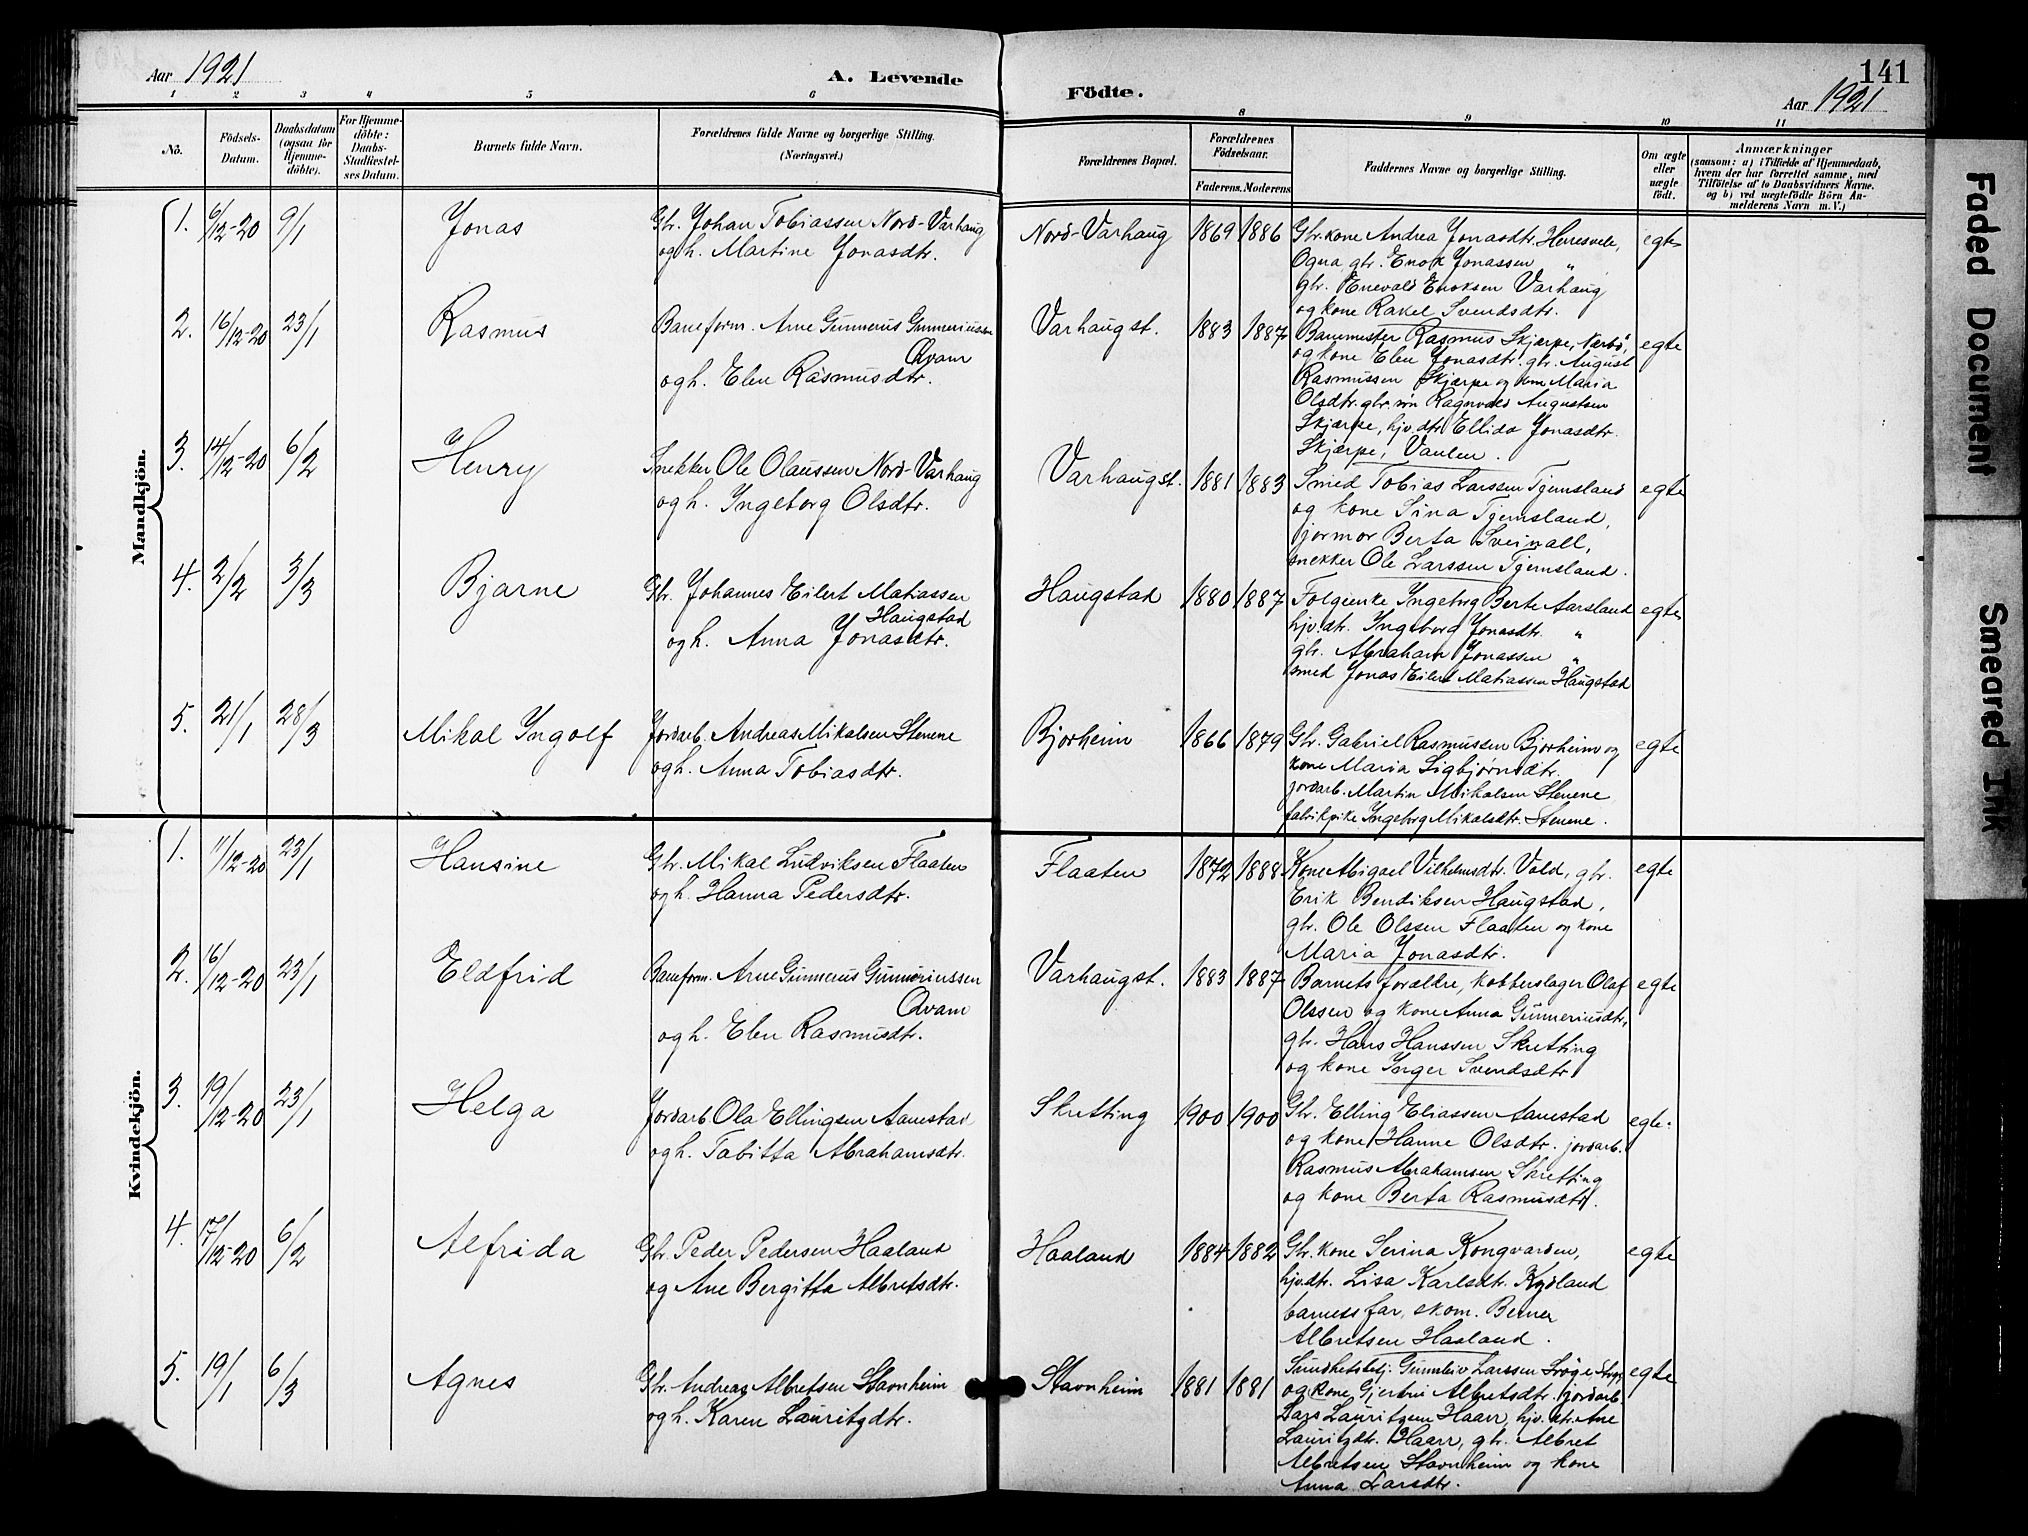 Aar 1921
A. Levende
Födte.
141
Aar 1921
1 2 3 4 5 6 8 9 10 11
No.
Födsels-
Datum.
Daabsdatum
(ogsaa for
Hjemme-
döbte).
For Hjemme-
döbte:
Daabs-
Stadfæstel-
ses Datum.
Barnets fulde Navn.
Forældrenes fulde Navne og borgerlige Stilling.
(Næringsvei.)
Forældrenes Bopæl.
Forældrenes
Födselsaar.
Faderens. Moderens.
Faddernes Navne og borgerlige Stilling.
Om ægte
eller
uægte
födt.
Anmærkninger
(saasom: a) i Tilfælde af Hjemmedaab,
hvem der har forrettet samme, med
Tilföielse af to Daabsvidners Navne.
og b) ved uægtefödte Börn An-
melderens Navn m. V.)
Mandkjön.
1. 6/12-20 9/1 Jonas
Gbr. Johan Tobiassen Nord-Varhaug
og h. Martine Jonasdtr.
Nord-Varhaug 1869 1886
Gbr. kone Andrea Jonasdtr. Herresvele,
Ogna, gbr. Enok Jonassen "
gbr. Enevald Enoksen Varhaug
og kone Rakel Svendsdtr.
egte
2. 16/12-20 23/1 Rasmus
Baneform. Arne Gunnerus Gunneriussen
Qvam
og h. Elen Rasmusdtr.
Varhaugst. 1883 1887
Banemester Rasmus Skjærpe, Nærbö,
og kone Elen Jonasdtr. gbr. August
Rasmussen Skjærpe og kone Maria
Olsdtr. gbr. sön Ragnvald Augustsen
Skjærpe, hjv. dtr. Ellida Jonasdtr.
Skjærpe, Vaulen.
egte
3. 14/12-20 6/2 Henry
Snekker Ole Olaussen Nord-Varhaug
og h. Ingeborg Olsdtr.
Varhaugst. 1881 1883
Smed Tobias Larssen Tjemsland
og kone Sina Tjemsland,
jormor Berta Sveinall,
snekker Ole Larssen Tjemsland.
egte
4. 2/2 3/3 Bjarne
Gbr. Johannes Eilert Matiassen
Haugstad
og h. Anna Jonasdtr.
Haugstad 1880 1887
Folgeenke Ingeborg Berte Aarsland
hjv. dtr. Ingeborg Jonasdtr. "
gbr. Abraham Jonassen "
smed Jonas Eilert Matiassen Haugstad
egte
5. 21/1 28/3 Mikal Ingolf
Jordarb. Andreas Mikalsen Stenene
og h. Anna Tobiasdtr.
Bjorheim 1866 1879
Gbr. Gabriel Rasmussen Bjorheim og
kone Maria Sigbjørnsdtr.
jordarb. Martin Mikalsen Stenene
fabrikpike Ingeborg Mikalsdtr. Stenene.
egte
Kvindekjön.
1. 11/12-20 23/1 Hansine
Gbr. Mikal Ludviksen Flaaten
og h. Hanna Pedersdtr.
Flaaten 1872 1888
Kone Abigael Vilhelmsdtr. Vold, gbr.
Erik Bendiksen Haugstad,
gbr. Ole Olssen Flaaten og kone
Maria Jonasdtr.
egte
2. 16/12-20 23/1 Eldfrid
Baneform. Arne Gunnerus Gunneriussen
Qvam
og h. Elen Rasmusdtr.
Varhaugst. 1883 1887
Barnets forældre, kobberslager Olaf
Olssen og kone Anna Gunneriusdtr,
gbr. Hans Hanssen Skretting
og kone Inger Svendsdtr
egte
3. 19/12-20 23/1 Helga
Jordarb. Ola Ellingsen Aanestad
og h. Tabitta Abrahamsdtr.
Skretting 1900 1900
Gbr. Elling Eliassen Aanestad
og kone Hanne Olsdtr. jordarb.
Rasmus Abrahamsen Skretting
og kone Berta Rasmusdtr.
egte.
4. 17/12-20 6/2 Alfrida
Gbr. Peder Pedersen Haaland
og Ane Bergitta Albretsdtr.
Haaland 1884 1882
Gbr. kone Serina Kongvarden,
hjv. dtr. Lisa Karlsdtr. Kydland
barnets far, skom. Berner
Albretsen Haaland.
egte
5. 19/1 6/3 Agnes
Gbr. Andreas Albretsen Stavnheim
og h. Karen Lauritzdtr.
Stavnheim 1881 1881
Sundhetsbetj. Gunnleiv Larssen
og kone Gjertru Albretsdtr. jordarb.
Lars Lauritzsen Haarr, hjv. dtr. Ane
Lauritzdtr. Haarr, gbr. Albret
Albretsen Stavnheim og kone
Anna Larsdtr.
egte
Faded Document
Smeared Ink